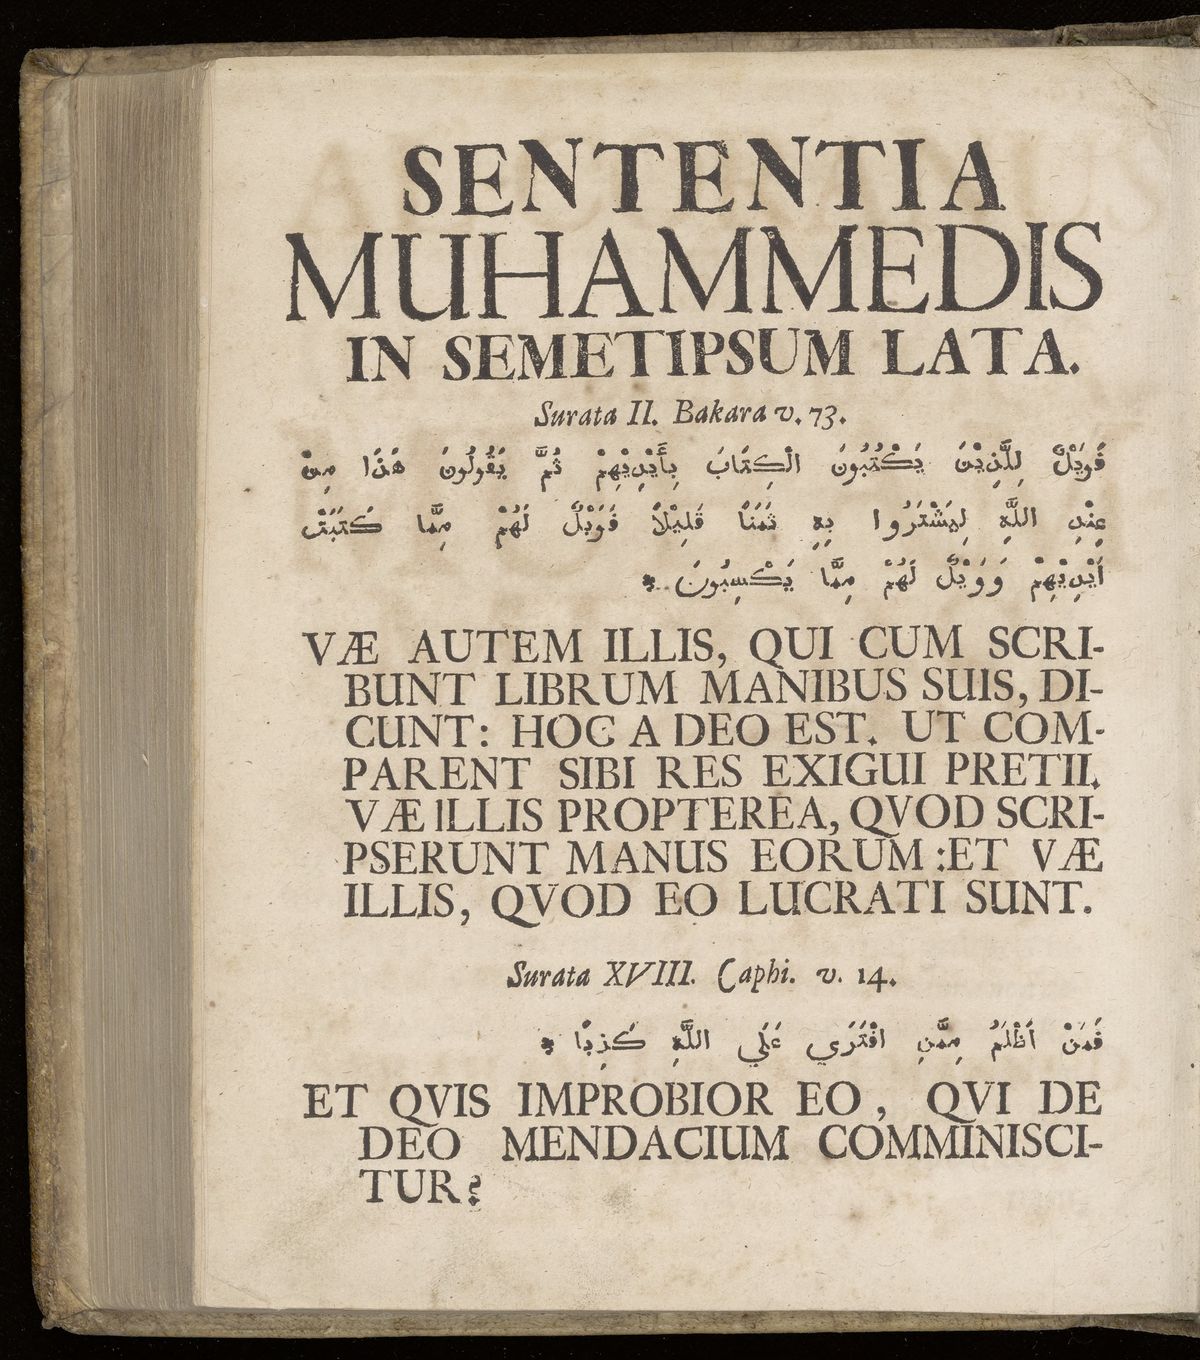 SENTENTIA
MUHAMMEDIS
IN SEMETIPSUM LATA.
Surata II. Bakara v. 73.
فَوَيْلٌ لِلَّذِيْنَ يَكْتُبُونَ الْكِتَابَ بِأَيْدِيْهِمْ ثُمَّ يَقُولُونَ هَذَا مِنْ
عِنْدِ اللَّهِ لِيَشْتَرُوا بِهِ ثَمَنًا قَلِيْلاً فَوَيْلٌ لَهُمْ مِمَّا كَتَبَتْ
اَيْدِيْهِمْ وَوَيْلٌ لَهُمْ مِمَّا يَكْسِبُونَ *
VÆ AUTEM ILLIS, QUI CUM SCRI-
BUNT LIBRUM MANIBUS SUIS, DI-
CUNT: HOC A DEO EST. UT COM-
PARENT SIBI RES EXIGUI PRETII.
VÆ ILLIS PROPTEREA, QVOD SCRI-
PSERUNT MANUS EORUM :ET VÆ
ILLIS, QVOD EO LUCRATI SUNT.
Surata XVIII. Caphi. v. 14.
فَمَنْ اَظْلَمُ مِمَّنِ افْتَرَي عَلَي اللَّهِ كَذِبًا *
ET QVIS IMPROBIOR EO, QVI DE
DEO MENDACIUM COMMINISCI-
TUR?